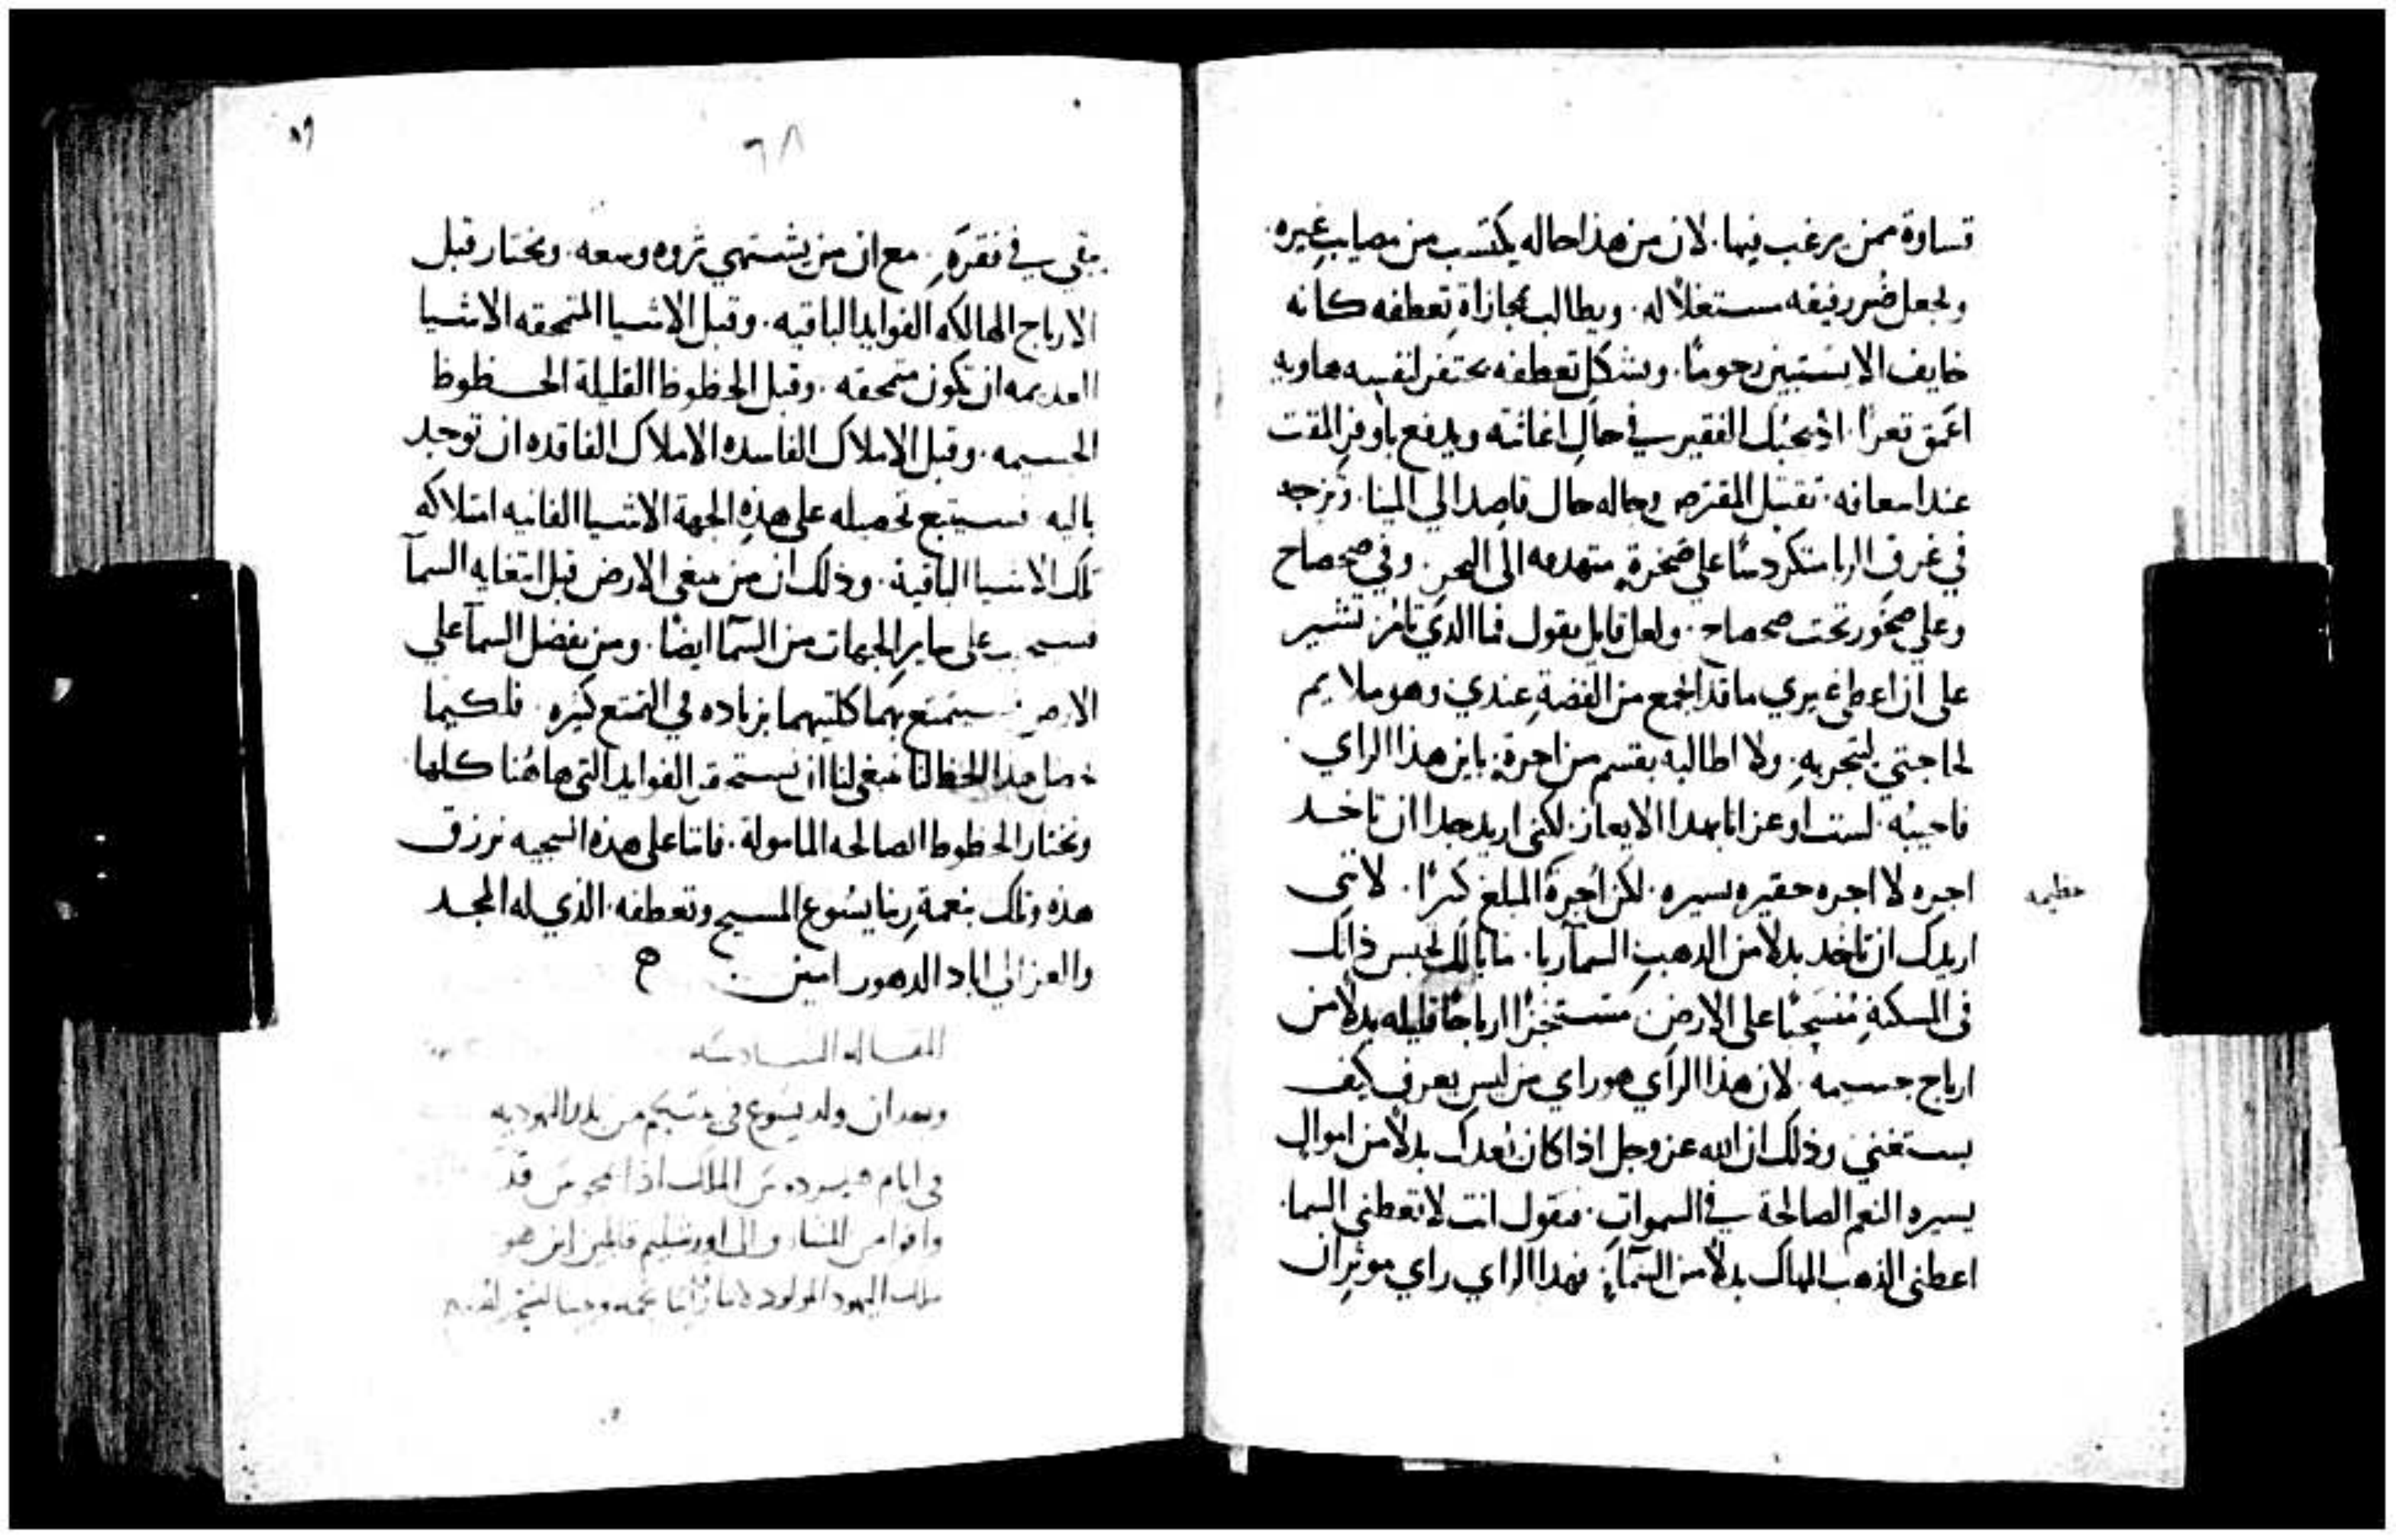 قساوة ممن يرغب فيها. لان من هذا حاله يكتسب من مصايب غيره.
ويجعل ضرر رفيقه مستغلاً له. ويطالب بمجازاة تعطفه كانه
خايف الا يستبين رحومًا. وبشكل تعطفه يحتفر لنفسه هاويه
اعمق تعرا. اذ يحبل الفقير في حال اغاثته ويدفع باوفر المقت
عند امعانه. تقتبل المقترض وحاله حال قاصد الي المينا. وتزجه
في غرف الربا متكردسًا على صخرةٍ متهدمه الى البحر. وفي صحصاح
وعلي صخور تحت صحصاح. ولعل قايل يقول فما الذي تامر تشير
على ان اعطى غيري ما قد اجمع من الفضة عندي وهو ملايم
لحاجتي لتجربهِ. ولا اطالبه بقسم من اجرةٍ باين هذا الراي
فاجيبُه. لست اوعز انا بهدا الايعاز. لكني اريد جدا ان تاخد
اجره لا اجره حقيره يسيره. لكن اجرةَ المبلغ كبرًا. لانني
عظيمه
اريدك ان تاخد بدلاً من الدهب السما ربا. ما بالك تحبس ذاتك
في المسكنةِ مُنسحبًا على الارض. مستنجزًا ارباحًا قليله بدلاً من
ارباح جسيمه. لان هذا الراي هو راي من ليس يعرف كيف
يستغني وذلك ان الله عز وجل اذا كان يعدك بدلاً من اموال
يسيره النعم الصالحة في السموات. فتقول انت لا تعطني السما.
اعطني الذهب الهالك بدلاً من السماءِ. فهدا الراي راي موثر ان
٨٦
٦٨
يبقي في فقرهِ. مع ان من يشتهي ثروه وسعه. ويختار قبل
الارباح الهالكه الفوايد الباقيه. وقبل الاشيا المتمحقه الاشيا
العديمه ان تكون متمحقه. وقبل الحظوظ القليلة الحظوظ
الجسيمه. وقبل الاملاك الفاسده الاملاك الفاقده ان توجد
باليه فسيتبع تحصيله على هذهِ الجهة الاشيا الفانيه امتلاكه
تلك الاشيا الباقية. وذلك ان من يبغى الارض قبل ابتغايه السما
على ساير الجهات من السما ايضًا. ومن يفضل السما علي
الارض فسيتمتع بهما كلتيهما بزياده في التمتع كثيره. فلكيما
هدا الحظ لنا ينبغي لنا ان نستحقر الفوايد التي هاهُنا كلها.
ونختار الحظوظ الصالحه المامولة. فاننا على هذه السجيه نرزق
هذه وتلك بنعمة ربنا يسُوع المسيح وتعطفه. الذي له المجد
والعز الي اباد الدهور امين.
المقاله السادسه
وبعد ان ولد يسوع في بيتلحم من بلد اليهوديه
في ايام هيرودس الملك اذا مجوس قد
وافوا من المشارق الى اورشليم قايلين اين هو
ملك اليهود المولود لاننا راينا نجمه وجينا لنسجد